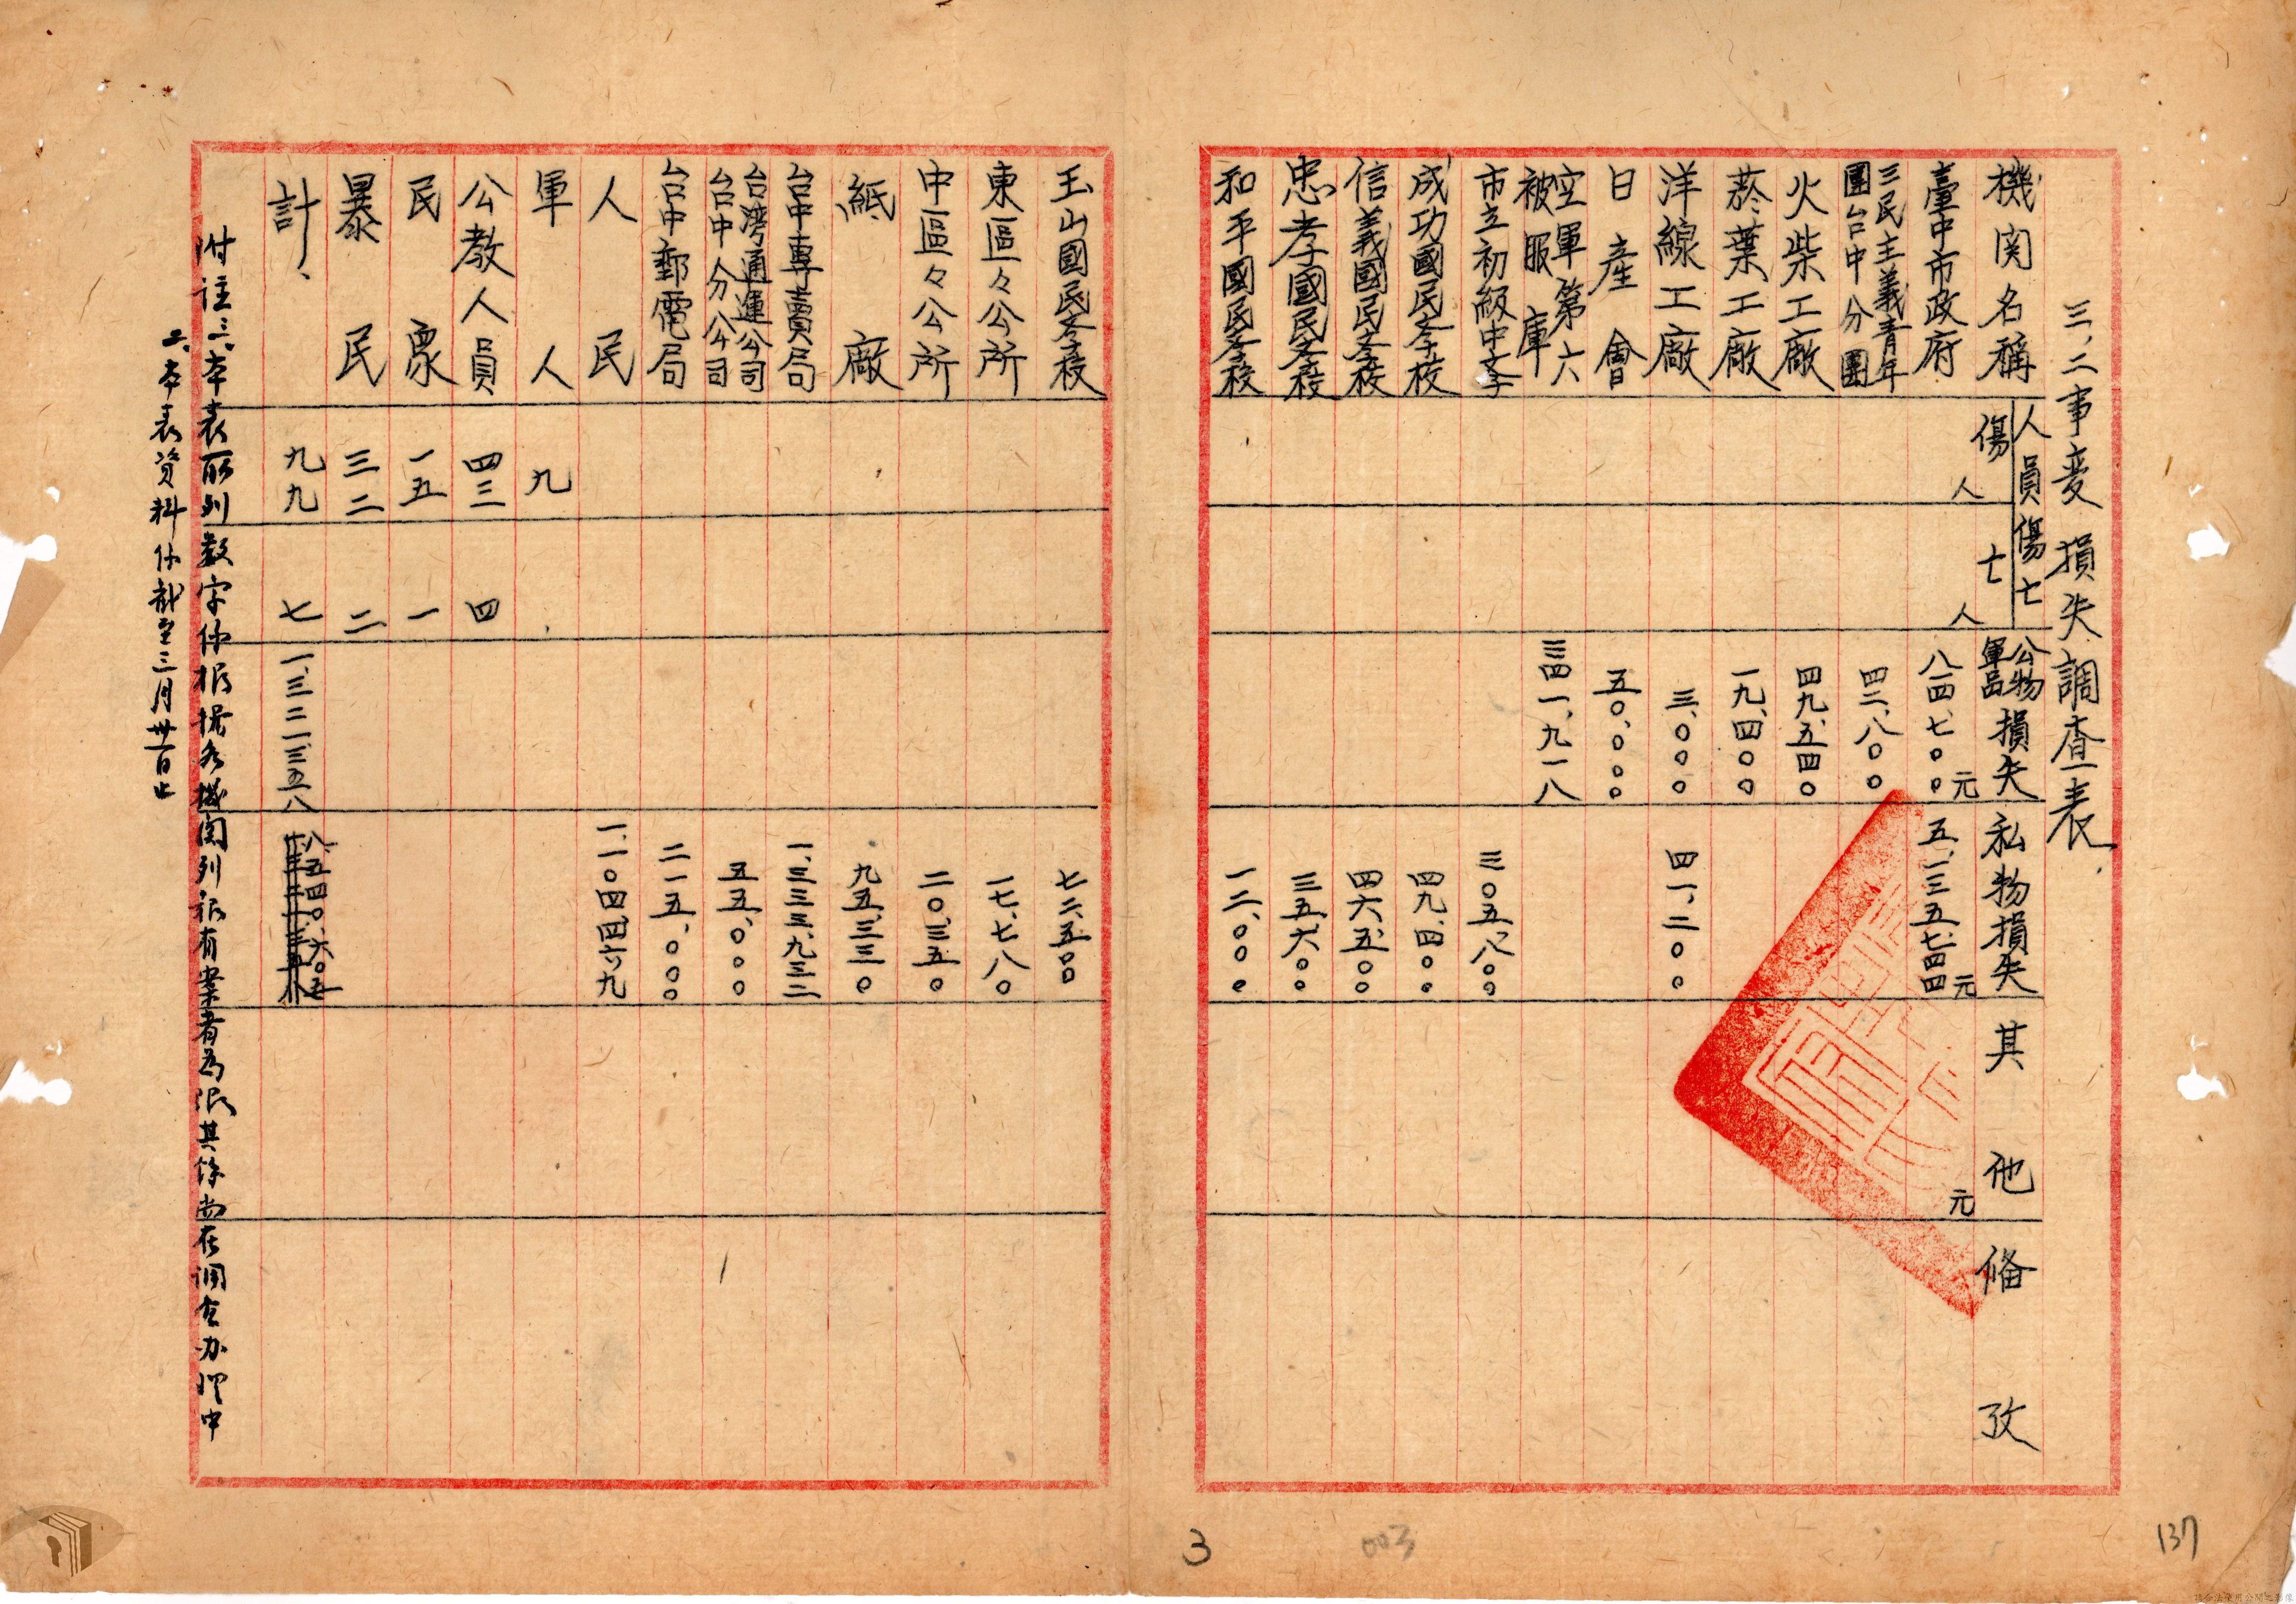 三、二事変損失調查表
機関名稱 人員傷亡 傷人 亡人 公物軍品損失 元 私物損失 元 其他 元 俻攷
臺中市政府 八四、七〇〇 五、一三五、七四四
三民主義青年團台中分團 四二、八〇〇
火柴工廠 四九、五四〇
菸葉工廠 一九、四〇〇
洋線工廠 三、〇〇〇 四一、二〇〇
日產會 五〇、〇〇〇
空軍第六被服庫 三四一、九一八
市立初級中学 三〇五、八〇〇
成功國民学校 四九、四〇〇
信義國民学校 四六、五〇〇
忠孝國民学校 三五、六〇〇
和平國民学校 一二、〇〇〇
玉山國民学校 七二、五〇〇
東區々公所 一七、七八〇
中區々公所 二〇、三五〇
紙廠 九五、三三〇
台中專賣局 一、三三三、九三二
台湾通運公司台中分公司 五五、〇〇〇
台中郵電局 二一五、〇〇〇
人民 一、一〇四、四六九
軍人 九
公教人員 四三 四
民眾 一五 一
暴民 三二 二
計、 九九 七 一、三二一、三五八 八、五四〇、六〇五
附註三、本表所列数字係根據各機関列報有案者為限其餘尚在調查办理中
二、本表資料係截至三月卅一日止
3
003
137